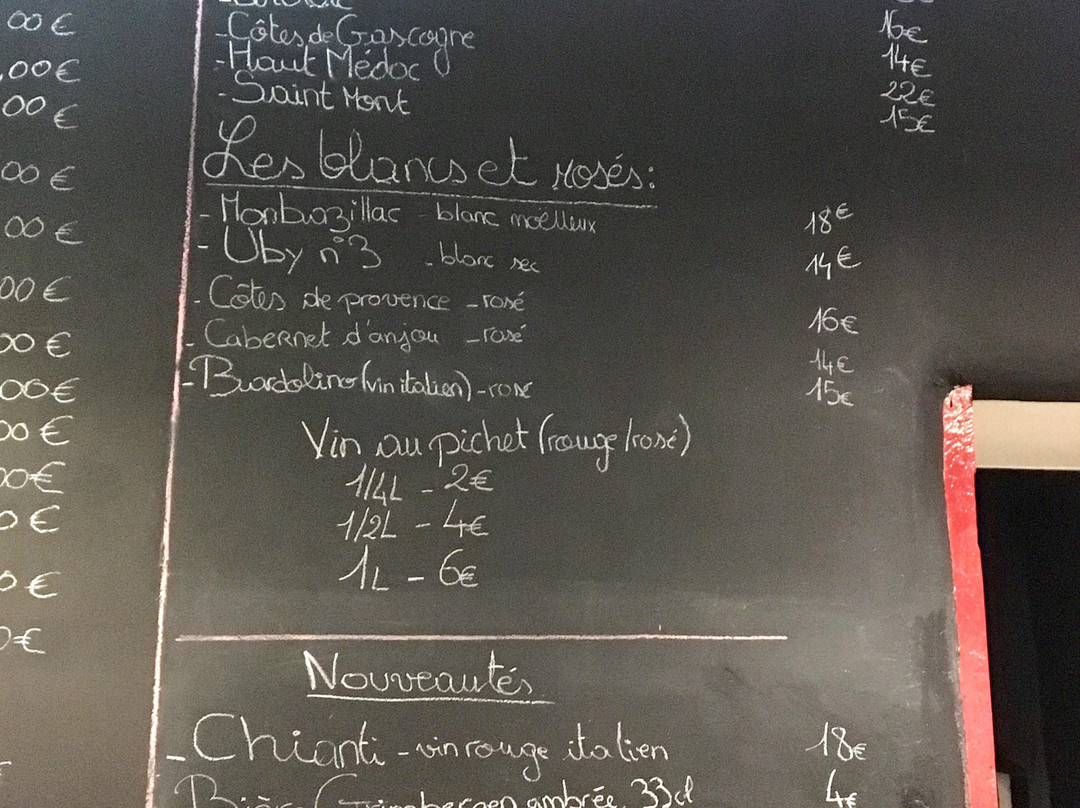 00€
,00€
00€
00€
00€
00€
00€
00€
00€
00€
0€
0€
0€
16€
- Côtes de Gascogne 14€
- Haut Médoc 22€
- Saint Mont 15€
Les blancs et rosés:
- Monbazillac - blanc moëlleux 18€
- Uby n°3 - blanc sec 14€
- Côtes de provence - rosé 16€
- Cabernet d'anjou - rosé 14€
- Bardolino (vin italien) - rosé 15€
Vin au pichet (rouge/rosé)
1/4L - 2€
1/2L - 4€
1L - 6€
Nouveautés
- Chianti - vin rouge italien 18€
Bière Grimbergen ambrée 33cl 4€